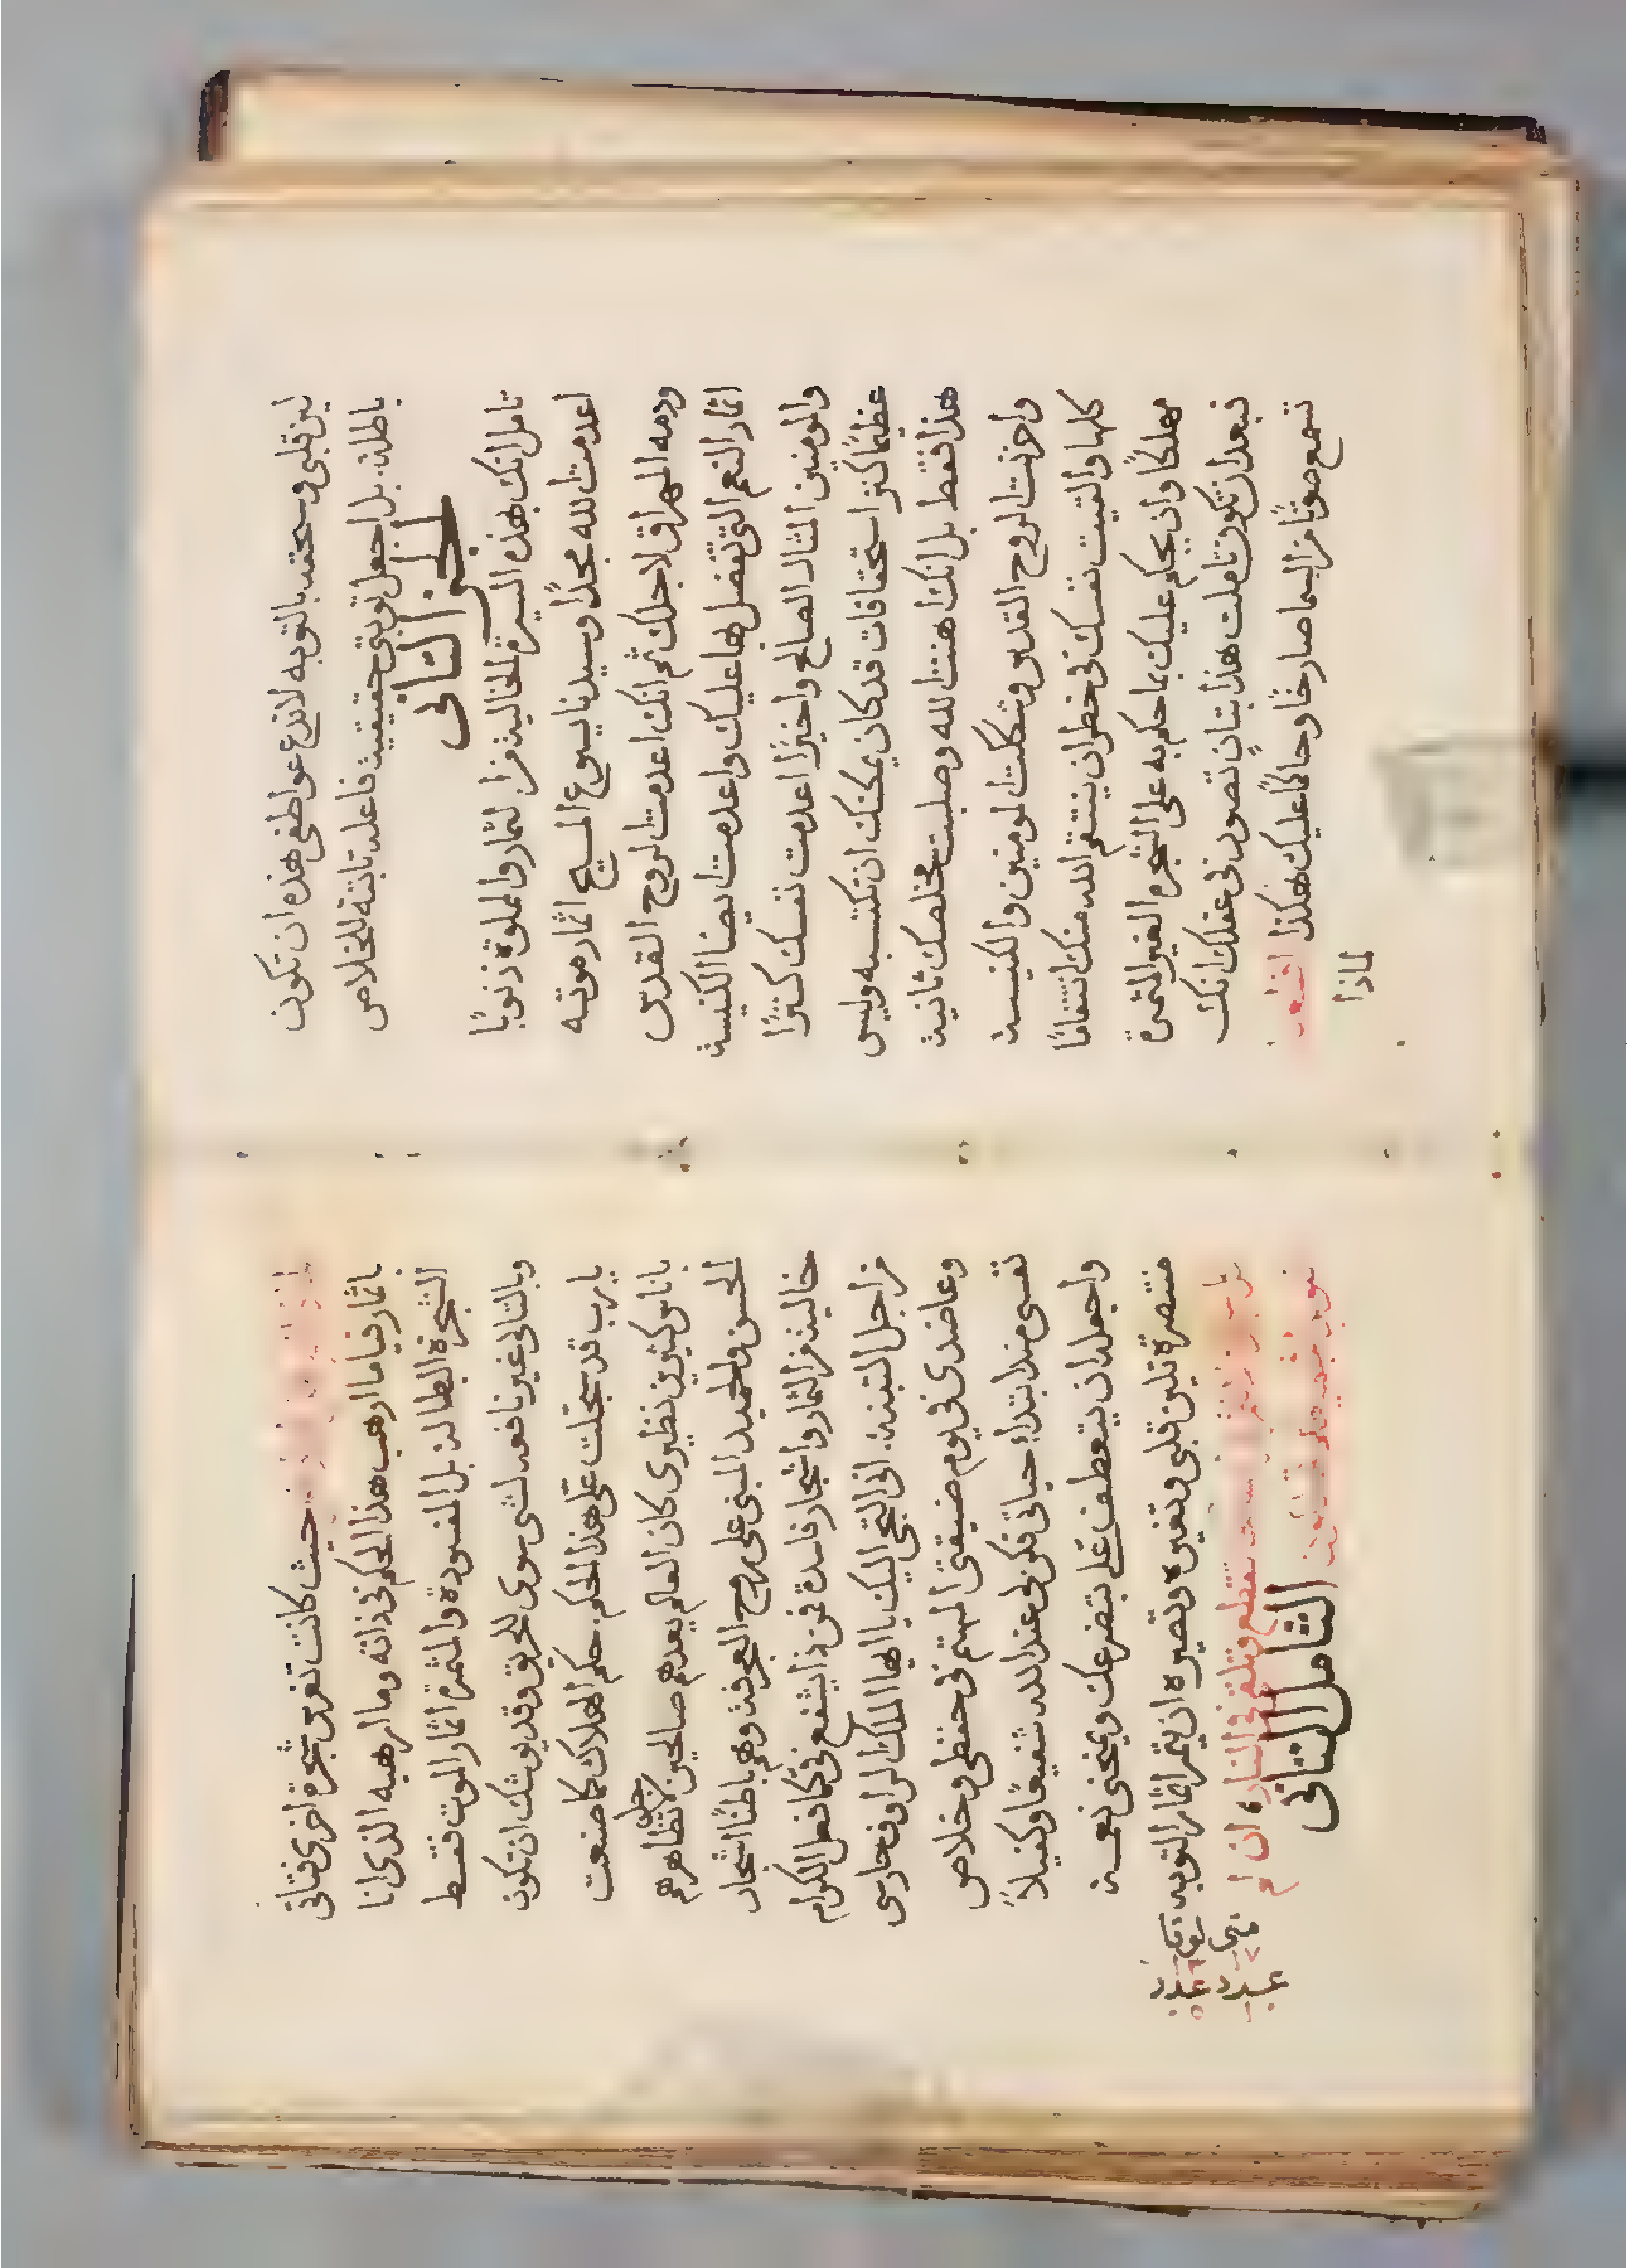 لين قلبي وسحقه بالتوبه لاتدع عواطفي هذه ان تكون
باطلة. بل اجعل توبتي حقيقية فاعلة تابته للخلاص
الجز الثاني
تامل انك بهذه السيرة الخالية من الثمار والملوة ذنوبًا
اعدمت الله مجدًا وسيدنا يسوع المسيح اثمار موته
ودمه المهراق لاجلك ثم انك اعدمت الروح القدس
اثمار النعم التي تفضل بها عليك واعدمت ايضا الكنيسة
والمومنين المثال الصالح واخيرًا اعدمت نفسك كنزًا
عظيمًا كنز استحقاقات قد كان يمكنك ان تكتسبه وليس
هذا فقط بل انك اهنت الله وصلبت مخلصك ثانية
واحزنت الروح القدس وشككت المومنين والكنيسة
كلها والقيت نفسك في خطر ان ينتقم الله منك انتقامًا
مهلكًا وان يحكم عليك بما حكم به على الشجرة الغير المثمرة
فبعد ان تكون تاملت هذا بتانٍ تصور في عقلك انك
تسمع صوتًا من السما صارخًا وحاكمًا عليك هكذا اقطعها
لماذا
حيث كانت تغرس شجرة اخرى فتاتي
باثمار فياما ارهب هذا الحكم في ذاته وما ارهبه الذي انا
الشجرة البطالة بل المفسودة والمثمرة اثمار الموت فقط
وبالتالي غير نافعه لشي سوى للحريق وقد يوشك ان تكون
يارب قد سجلت على هذا الحكم. حكم الهلاك كما صنعت
باناس كثيرين نظيري كان العالم يعدهم صالحين لاجل تظاهرهم
الحسن والحميد المبني على ريح العجرفة وهم باطنًا اشجار
خالية من الثمار واشجار فاسدة فمن ذا يشفع في كما فعل الكرام
من اجل التينة. اني التجي اليك يا ايها الملاك الراوف حارسي
وعاضدي في يوم ضيقتي المهتم في حفظي وخلاص
نفسي منذ ابتداء حياتي فكن لي عند الله شفيعًا وكفيلاً
واجعله ان يتعطف على بتضرعك ويمنحني نعمة
منتصرة تلين قلبي وتغيره وتصيره ان يثمر اثمار التوبه
تقطع وتلقى في النار ان لم
التامل الثاني